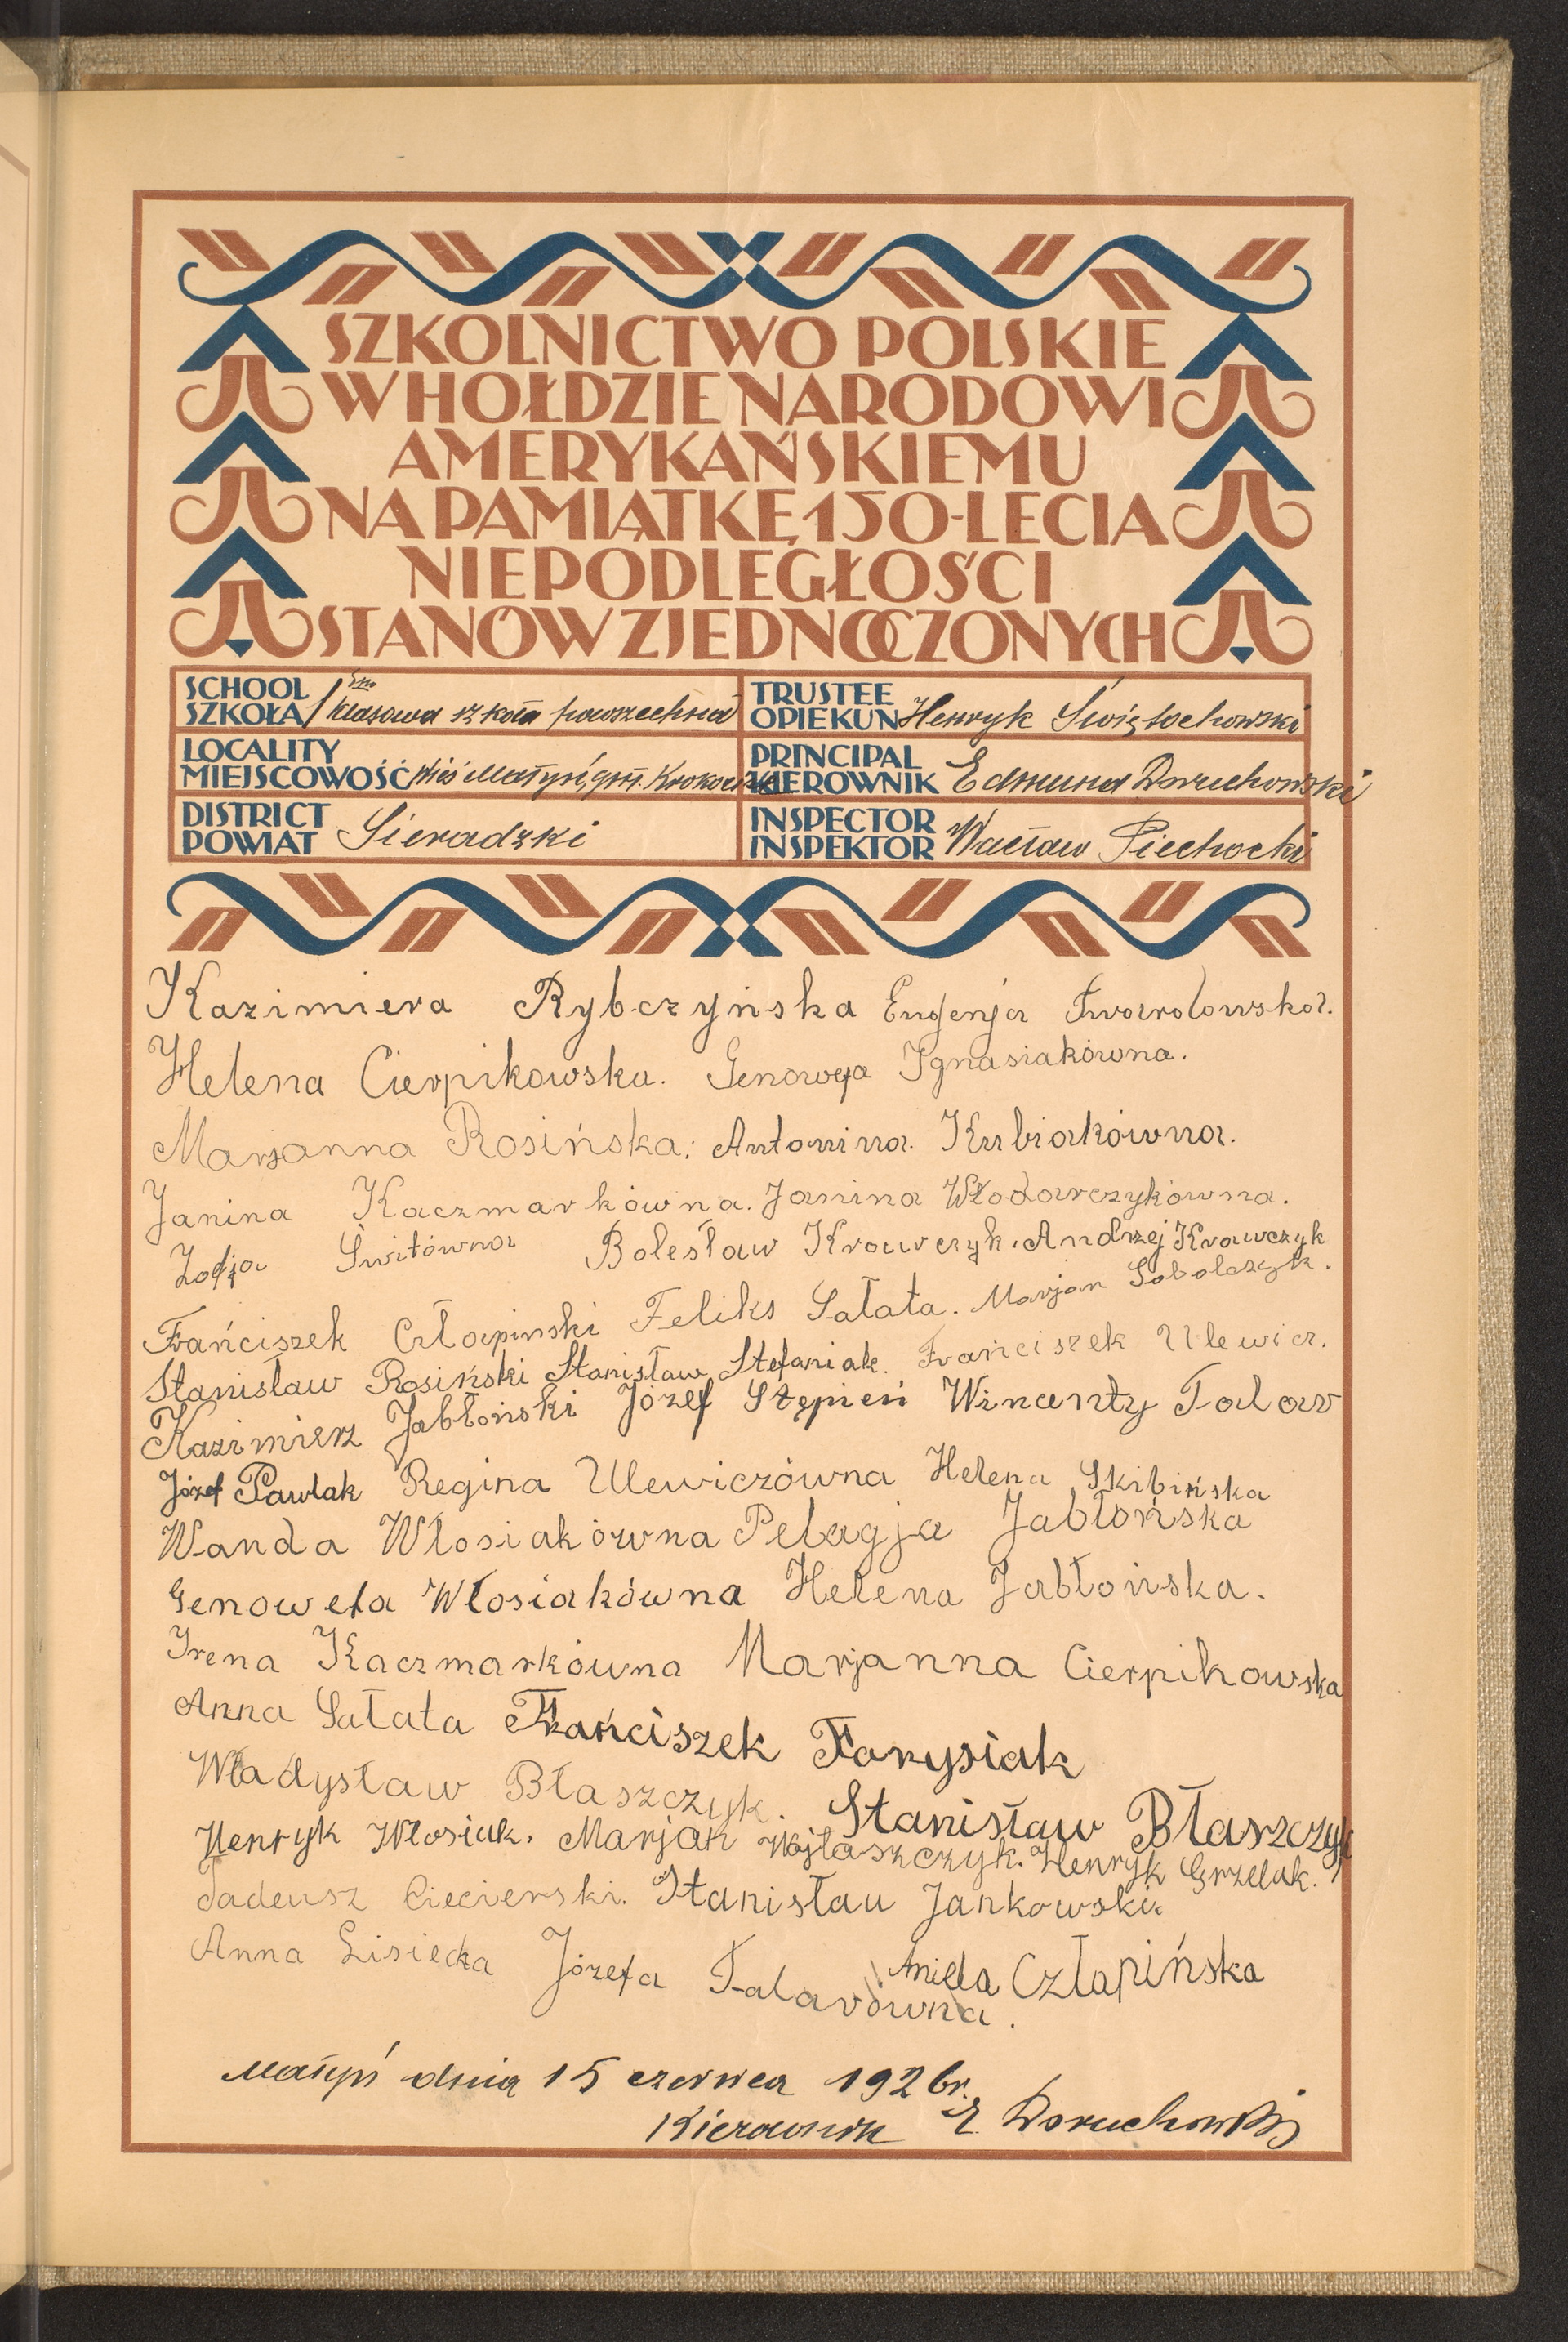 SZKOLNICTWO POLSKIE
W HOŁDZIE NARODOWI
AMERYKAŃSKIEMU
NA PAMIĄTKĘ 150-LECIA
NIEPODLEGŁOŚCI
STANÓW ZJEDNOCZONYCH
SCHOOL SZKOŁA 1 klasowa szkoła powszechna
TRUSTEE OPIEKUN Henryk Świętochowski
LOCALITY MIEJSCOWOŚĆ Wieś Małyń, gm. Krokocice
PRINCIPAL KIEROWNIK Edmund Doruchowski
DISTRICT POWIAT Sieradzki
INSPECTOR INSPEKTOR Wacław Piechocki
Kazimiera Rybczyńska Eugenja Twardowska.
Helena Cierpikowska. Genowefa Ignasiakówna.
Marjanna Rosińska; Antonina Kubiakówna.
Janina Kaczmarkówna. Janina Włodarczykówna.
Zofja Świtówna Bolesław Krawczyk. Andrzej Krawczyk
Frańciszek Człapinski Feliks Sałata. Marjan Sobolczyk.
Stanisław Rosiński Stanisław Stefaniak. Frańciszek Ulewicz.
Kazimierz Jabłoński Józef Stępień Wincenty Talar
Józef Pawlak Regina Ulewiczówna Helena Skibińska
Wanda Włosiakówna Pelagja Jabłońska
Genowefa Włosiakówna Helena Jabłońska.
Irena Kaczmarkówna Marjanna Cierpikowska
Anna Sałata Frańciszek Farysiak
Władysław Błaszczyk. Stanisław Błaszczyk
Henryk Włosiak. Marjan Wojtaszczyk. Henryk Grzelak.
Tadeusz Ciecierski. Stanisław Jankowski
Anna Lisiecka Józefa Talarówna. Aniela Człapińska
Małyń dnia 15 czerwca 1926 r.
Kierownik E. Doruchowski